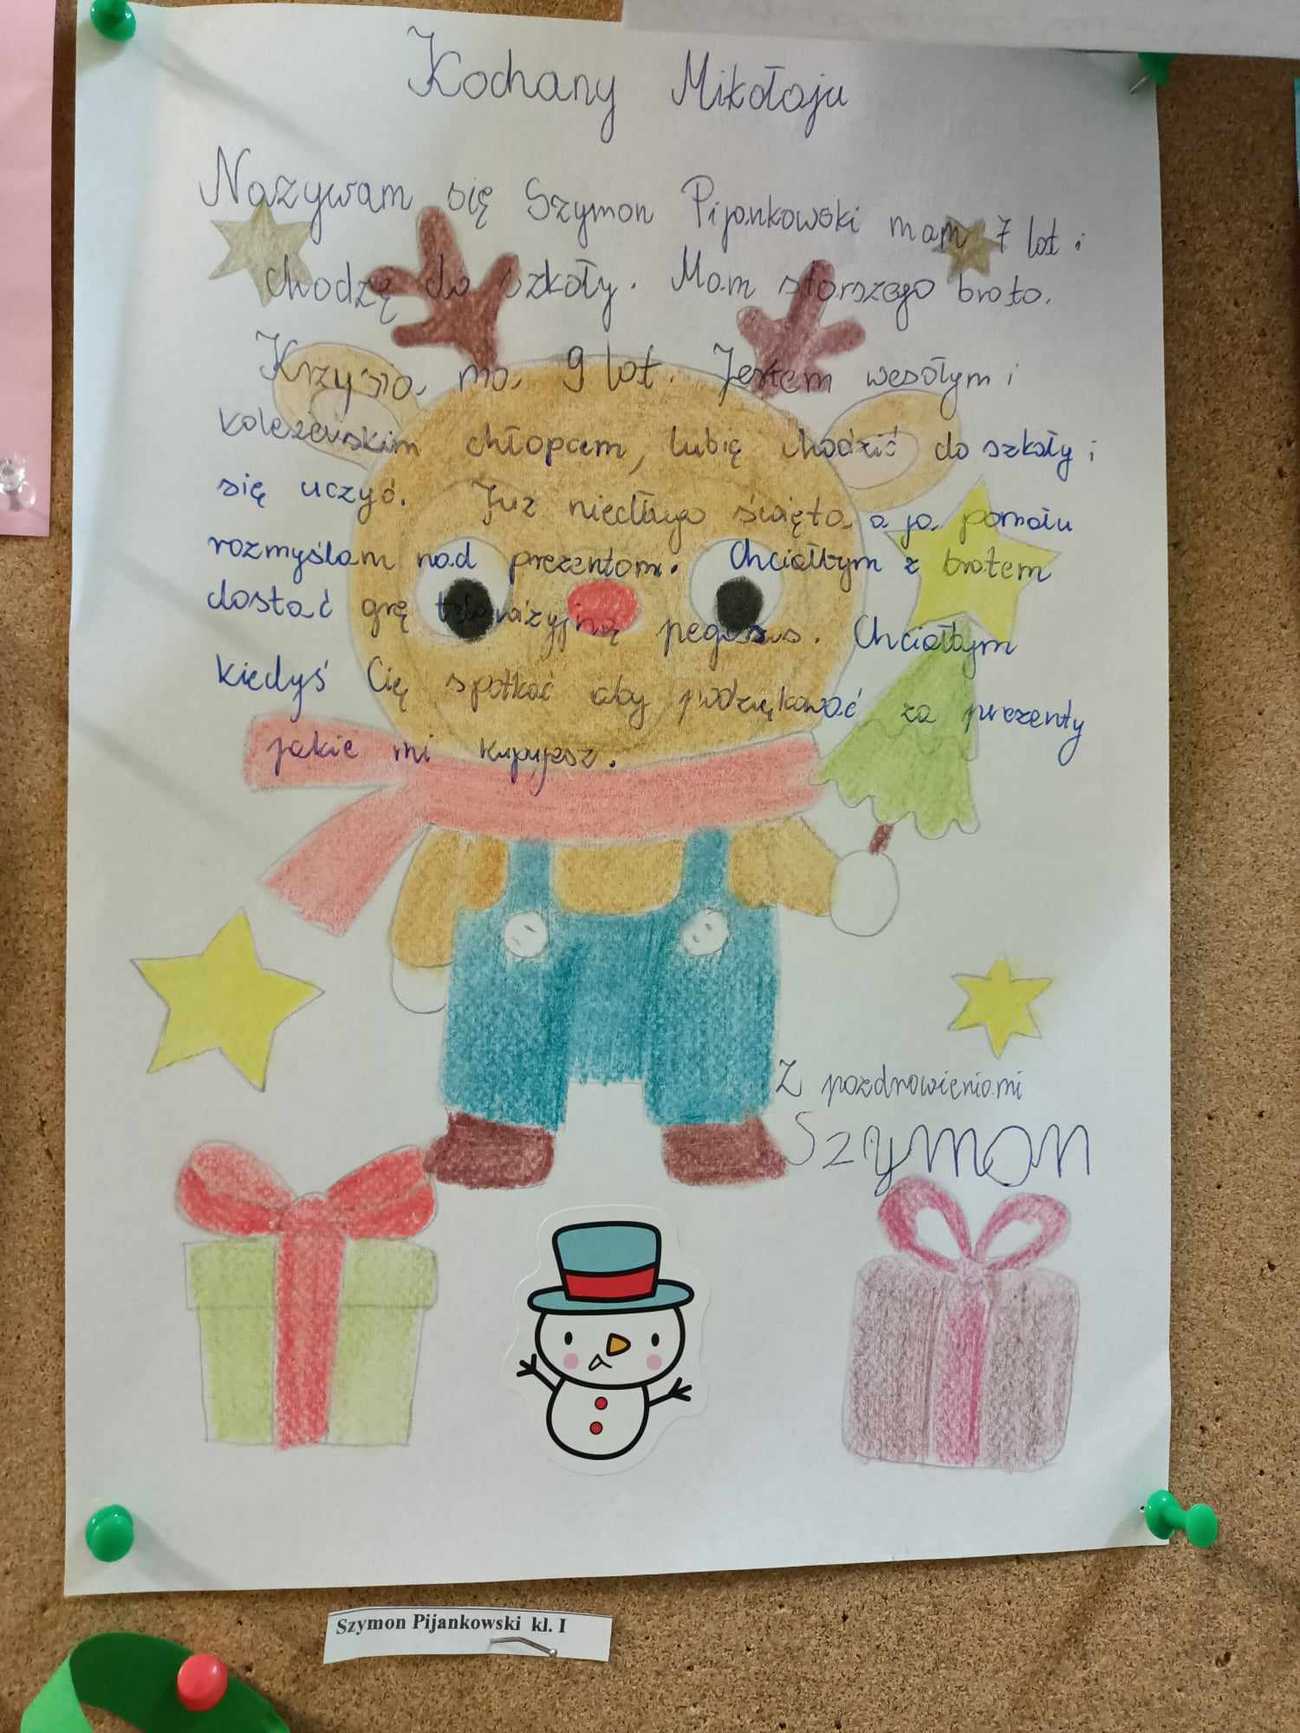 Kochany Mikołaju
Nazywam się Szymon Pijankowski mam 7 lat i
chodzę do szkoły. Mam starszego brata.
Krzysia, ma 9 lat. Jestem wesołym i
koleżeńskim chłopcem, lubię chodzić do szkoły i
się uczyć. Już niedługo święta a ja pomału
rozmyślam nad prezentom. Chciałbym z bratem
dostać grę telewizyjną pegasus. Chciałbym
kiedyś Cię spotkać aby podziękować za prezenty
jakie mi kupujesz.
Z pozdrowieniami
Szymon
Szymon Pijankowski kl. I